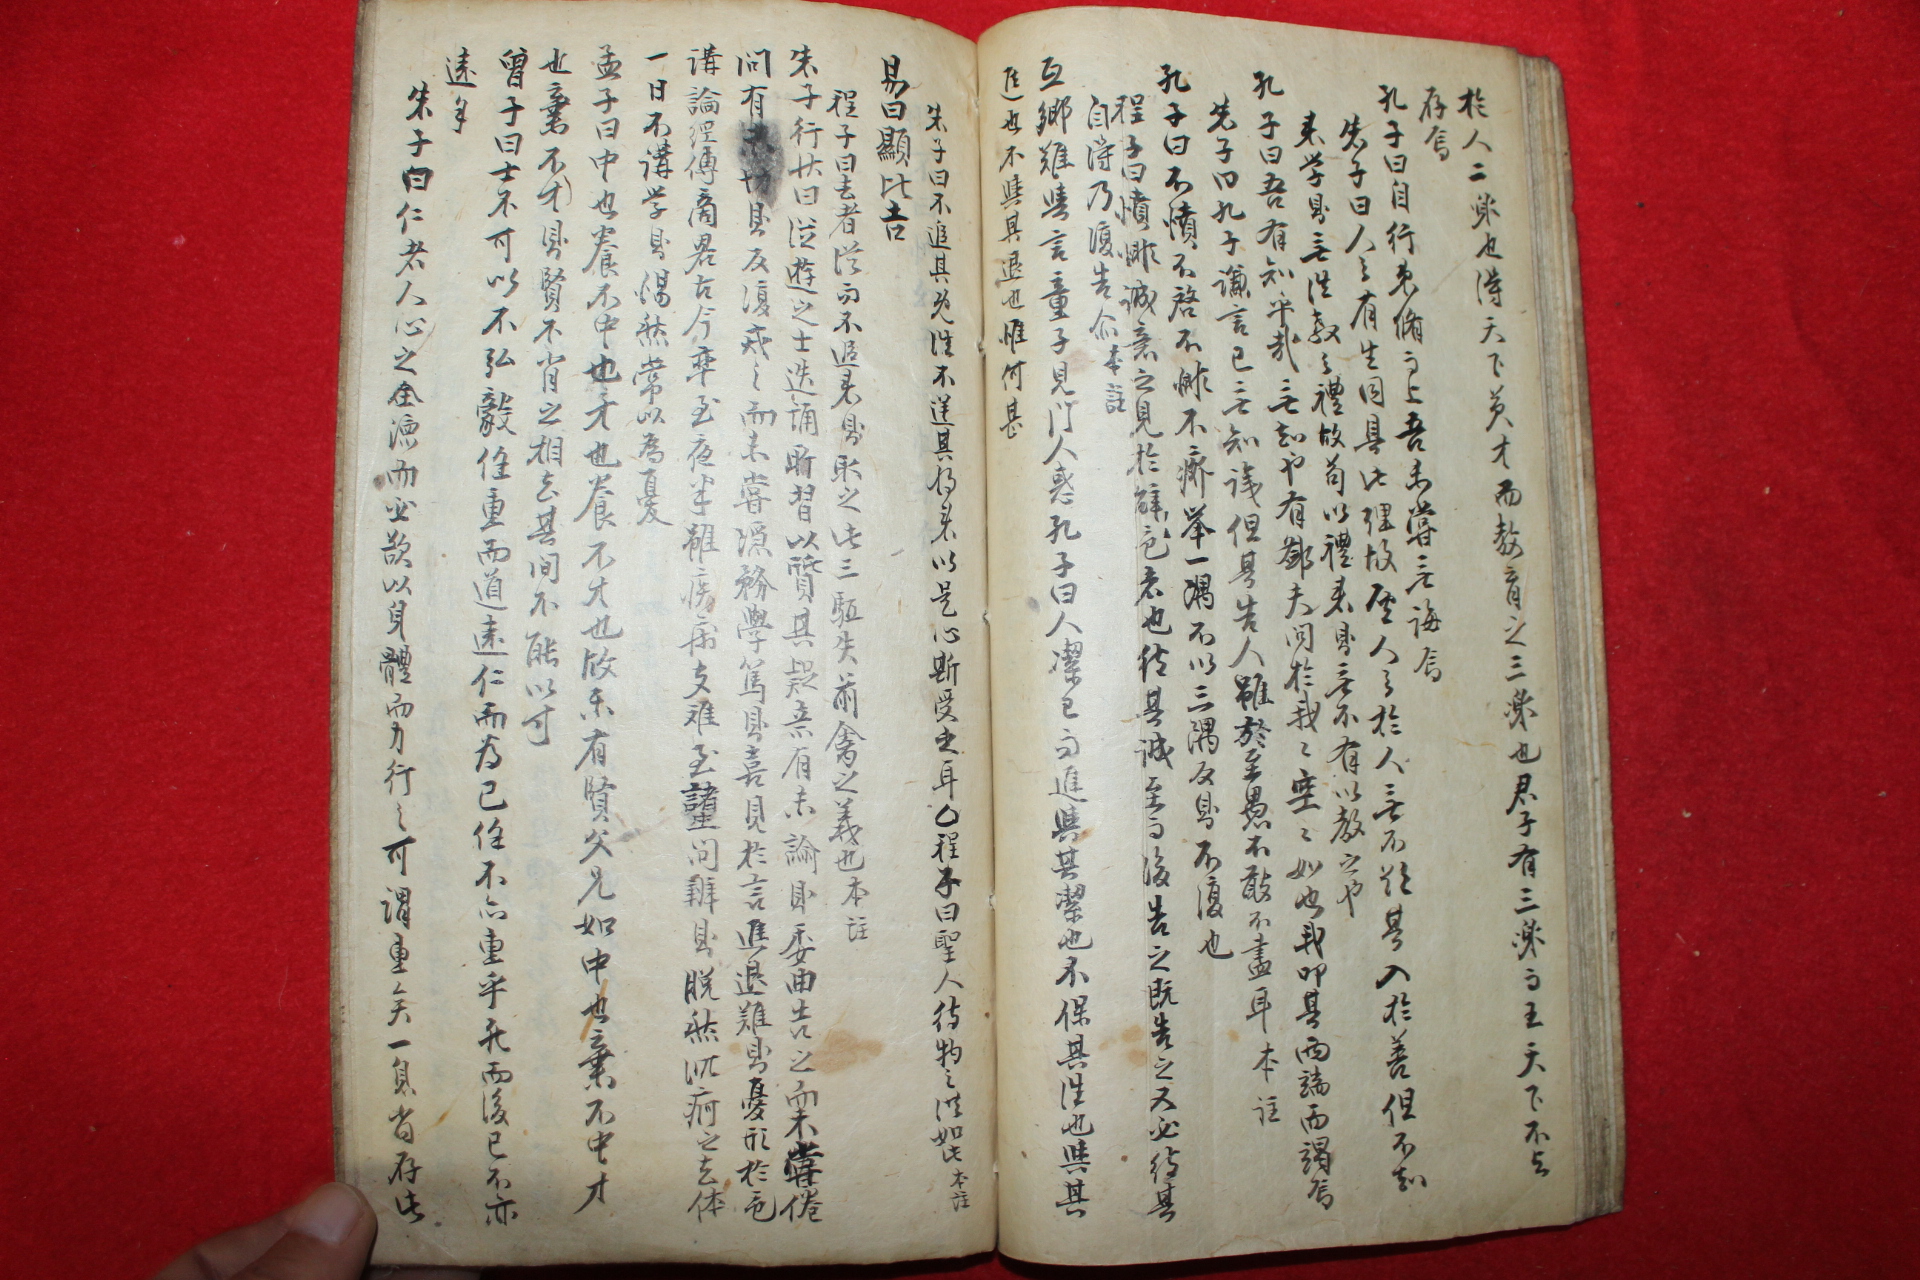 於人二樂也得天下英才而教育之三樂也君子有三樂而王天下不与
存焉
孔子曰自行束脩而上吾未嘗无誨焉
朱子曰人之有生同具此理故聖人之於人无不欲其入於善但不知
来学則无徃教之禮故苟以禮来則无不有以教之也
孔子曰吾有知乎哉无知也有鄙夫問於我〻空〻如也我叩其両端而竭焉
朱子曰孔子謙言已无知識但其告人雖於至愚不敢不盡耳本註
孔子曰不憤不啓不悱不發举一隅不以三隅反則不復也
程子曰憤悱誠意之見於辞色者也待其誠至而後告之既告之又必待其
自得乃復告尒本註
互鄕難與言童子見门人惑孔子曰人潔已而進與其潔也不保其徃也與其
進也不與其退也惟何甚
朱子曰不追其既徃不逆其将来以是心斯受之耳〇程子曰聖人待物之洪如此本註
易曰顯比吉
程子曰去者從而不追来則取之此三驅失前禽之義也本註
朱子行狀曰從遊之士迭誦所習以質其疑意有未諭則委曲告之而未嘗倦
問有未切則反復戒之而未嘗隱務學篤則喜見於言進退難則憂形於色
講論經傳商畧古今率至夜半雖疾病支離至諸生問辨則脱然沉痾之去体
一日不講学則惕然常以為憂
孟子曰中也養不中也才也養不才也故樂有賢父兄如中也棄不中才
也棄不才則賢不肖之相去其间不能以寸
曾子曰士不可以不弘毅任重而道遠仁而为已任不亦重乎死而後已不亦
遠乎
朱子曰仁者人心之全德而必欲以身體而力行之可謂重矣一息尚存此